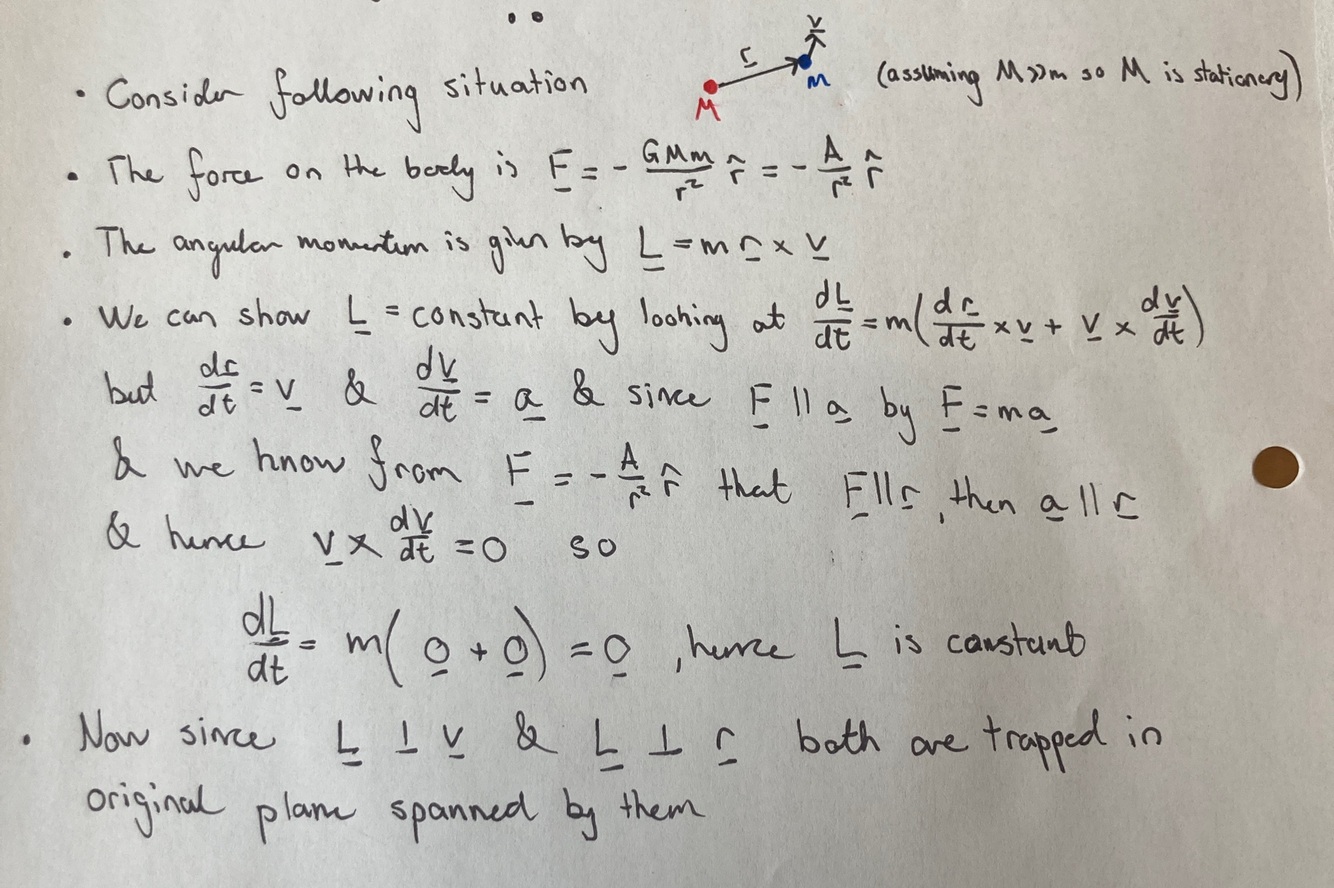 • Consider following situation M r m v (assuming M>>m so M is stationery)
• The force on the body is F = - GMm/r² r̂ = - A/r² r̂
• The angular momentum is given by L = m r × v
• We can show L = constant by looking at dL/dt = m(dr/dt × v + v × dv/dt)
but dr/dt = v & dv/dt = a & since F || a by F = ma
& we know from F = - A/r² r̂ that F || r, then a || r
& hence v × dv/dt = 0 so
dL/dt = m(0 + 0) = 0, hence L is constant
• Now since L ⊥ v & L ⊥ r both are trapped in
original plane spanned by them